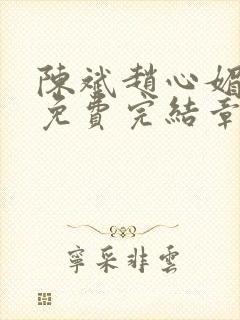 陳斌趙心媚
免費完結章
寧采非雲